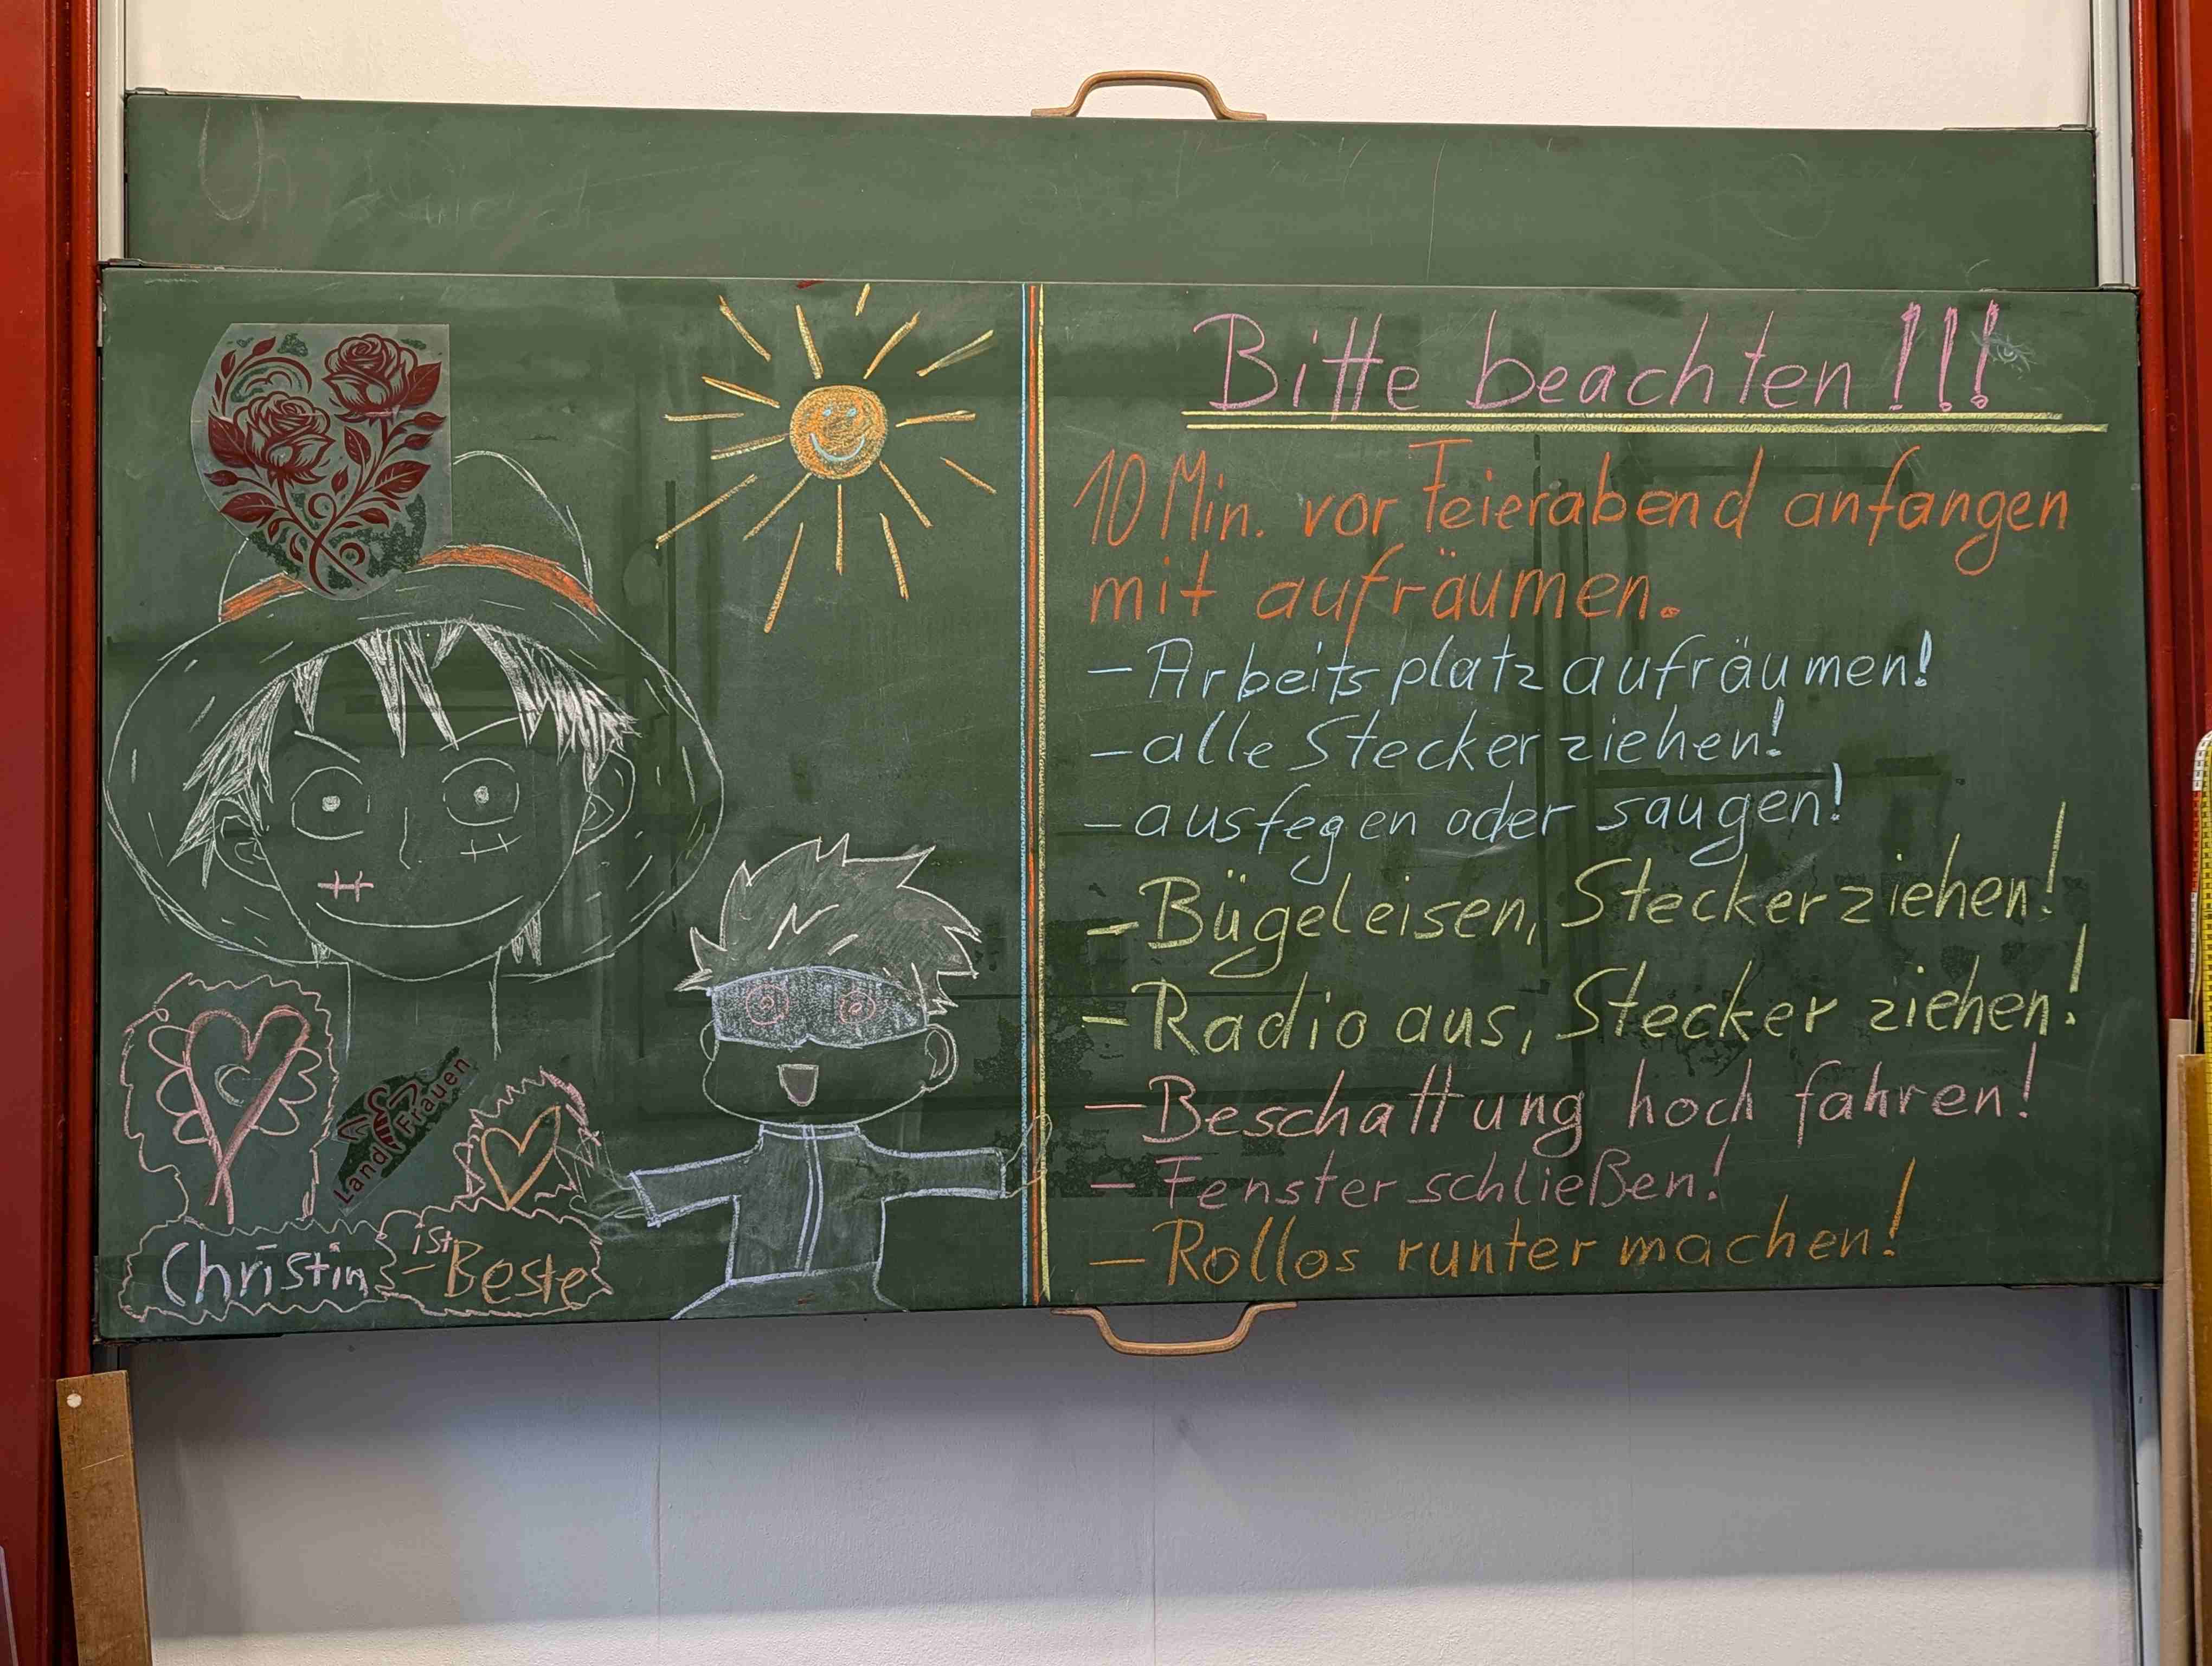 Bitte beachten!!!
10 Min. vor Feierabend anfangen
mit aufräumen.
- Arbeitsplatz aufräumen!
- alle Stecker ziehen!
- ausfegen oder saugen!
- Bügeleisen, Stecker ziehen!
- Radio aus, Stecker ziehen!
- Beschattung hoch fahren!
- Fenster schließen!
- Rollos runter machen!
LandFrauen
Christin ist Beste